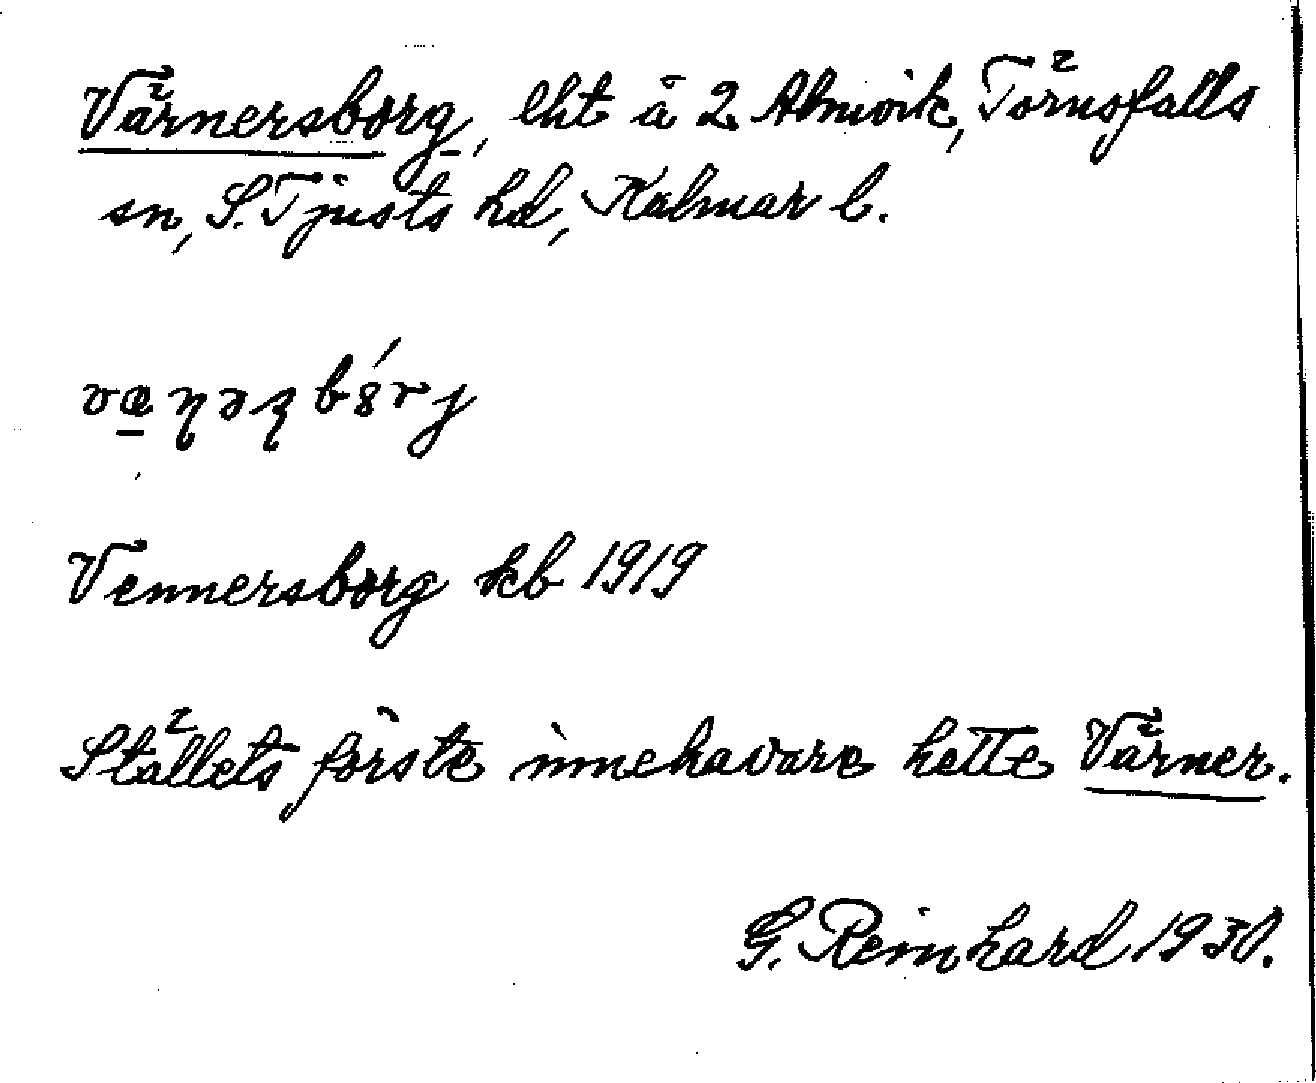 Värnersborg, lht å 2 Almvik, Törnsfalls
sn, S. Tjusts hd, Kalmar l.
Vennersborg kb 1919
Ställets förste innehavare hette Värner.
G. Reinhard 1930.